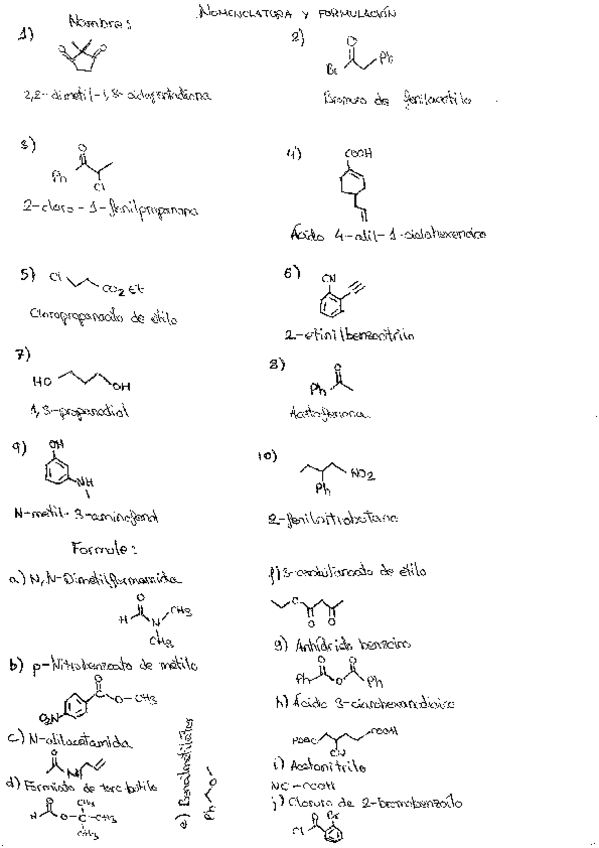 NOMENCLATURA Y FORMULACIÓN
Nombre:
1)
O O
2,2-dimetil-1,3-ciclopentadiona
2)
O
Br Ph
Bromuro de fenilacetilo
3)
O
Ph
Cl
2-cloro-1-fenilpropanona
4)
COOH
Ácido 4-alil-1-ciclohexenoico
5) Cl CO2Et
Cloropropanoato de etilo
6)
CN
2-etinilbenzonitrilo
7)
HO OH
1,3-propanodiol
8)
O
Ph
Acetofenona
9)
OH
NH
N-metil-3-aminofenol
10)
NO2
Ph
2-fenilnitrobutano
Formule:
a) N,N-Dimetilformamida
O
H N CH3
CH3
b) p-Nitrobenzoato de metilo
O
C O-CH3
O2N
c) N-alilacetamida
O
NH
d) Formiato de terc-butilo
O CH3
H O-C-CH3
CH3
e) Bencilmetiléter
Ph O
f) 3-oxobutanoato de etilo
O
O O
g) Anhídrido benzoico
O O
Ph O Ph
h) Ácido 3-cianohexanodioico
HOOC COOH
CN
i) Acetonitrilo
j) Cloruro de 2-bromobenzoilo
O Br
Cl